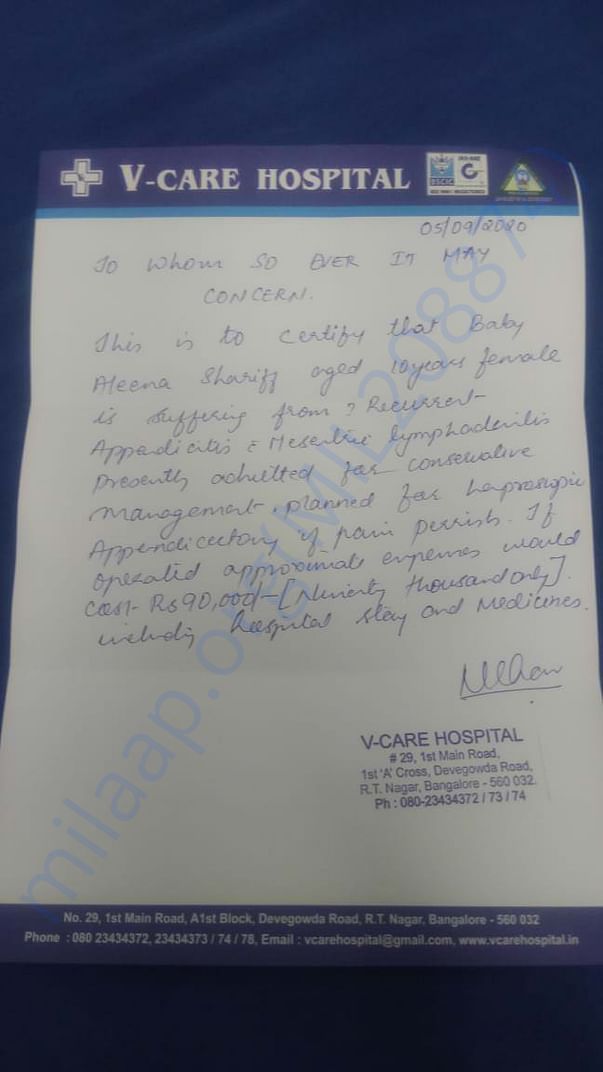 V-CARE HOSPITAL
05/09/2020
To Whom SO EVER IT MAY
CONCERN.
This is to certify that Baby
Aleena Shariff aged 10years female
is suffering from ? Recurrent
Appendicitis c Mesentric lymphadenitis
Presently admitted for conservative
management, planned for laproscopic
Appendicectomy if pain persists. If
operated approximate expenses would
cost Rs 90,000/- [Ninenty thousand only].
including hospital stay and Medicines.
V-CARE HOSPITAL
# 29, 1st Main Road,
1st 'A' Cross, Devegowda Road,
R.T. Nagar, Bangalore - 560 032.
Ph : 080-23434372 / 73 / 74
No. 29, 1st Main Road, A1st Block, Devegowda Road, R.T. Nagar, Bangalore - 560 032
Phone : 080 23434372, 23434373 / 74 / 78, Email : vcarehospital@gmail.com, www.vcarehospital.in